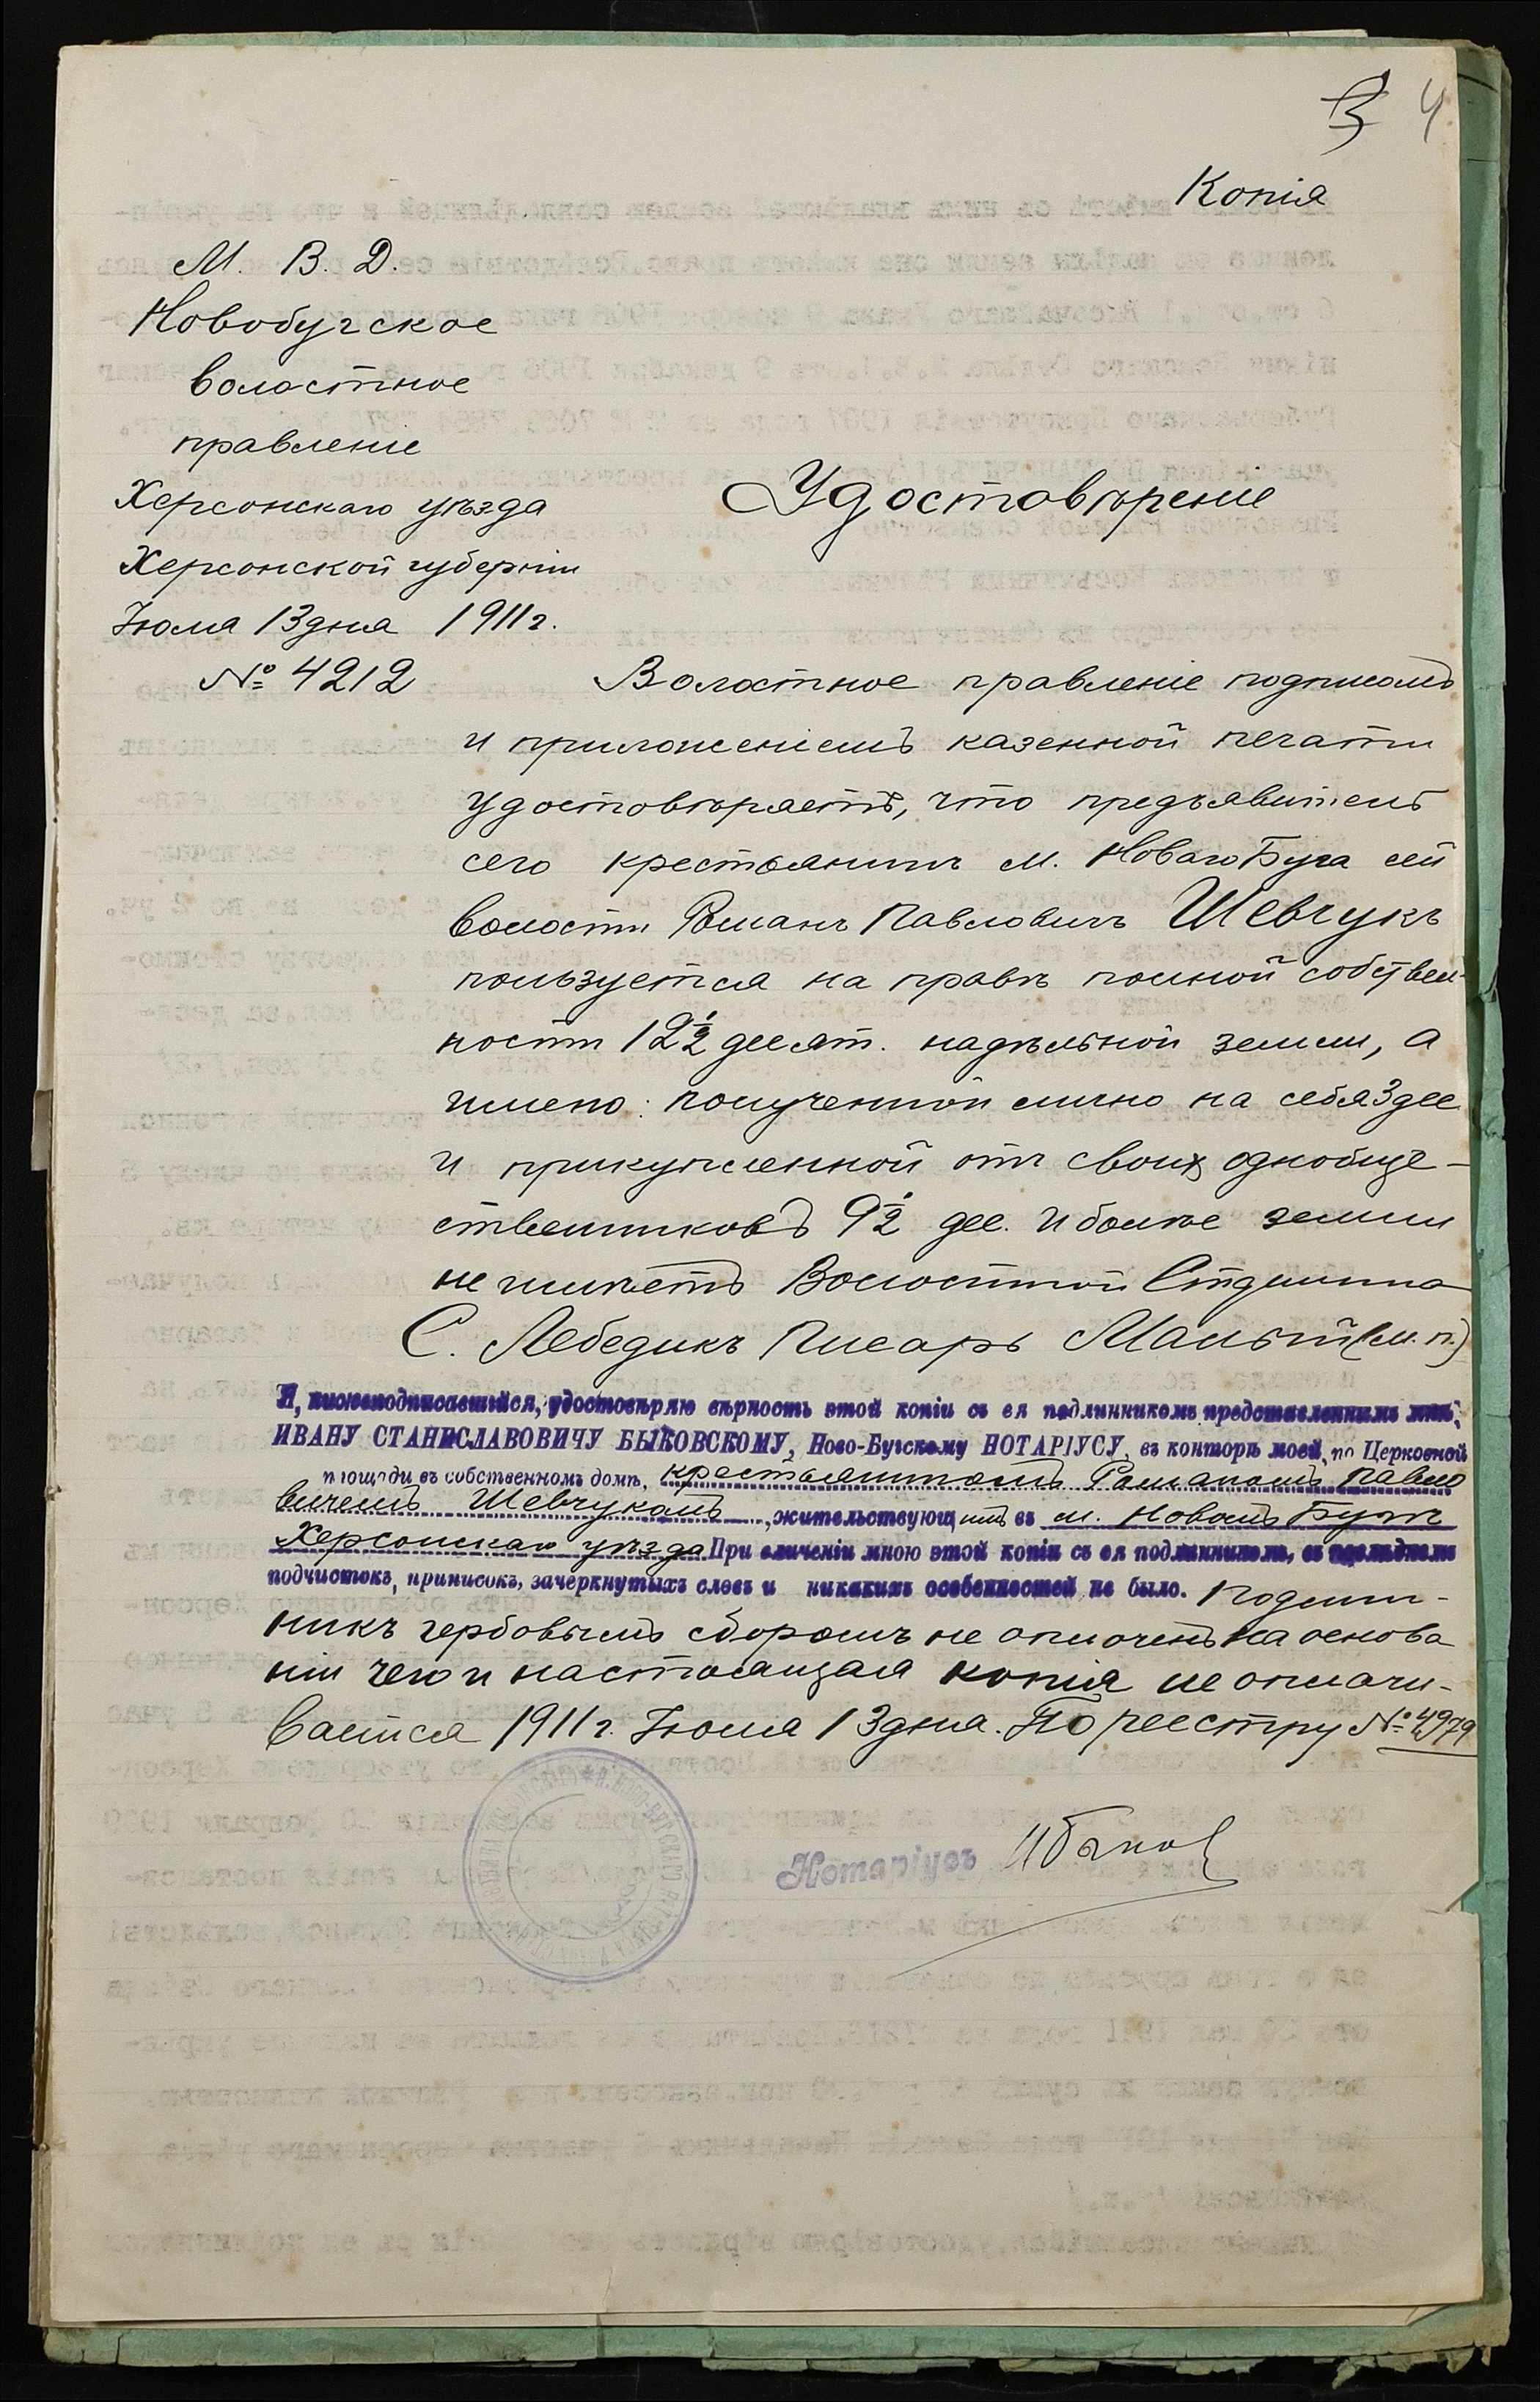 3 4
Копія
М. В. Д.
Новобугское
волостное
правленіе
Херсонскаго уѣзда
Херсонской губерніи
Іюля 13 дня 1911 г.
№ 4212
Удостовѣреніе
Волостное правленіе подписомъ
и приложеніемъ казенной печати
удостовѣряетъ, что предъявитель
сего крестьянинъ м. Новаго Буга сей
волости Романъ Павловичъ Шевчукъ
пользуется на правѣ полной собствен-
ности 12½ десят. надѣльной земли, а
имено: полученной лично на себя 3 дес
и прикупленной отъ своихъ однобще-
ственниковъ 9½ дес. и болѣе земли
не имѣетъ Волостной Стдшина
С. Лебедикъ Писарь Малый (м. п.)
Я, нижеподписавшійся, удостовѣряю вѣрность этой копіи съ ея подлинникомъ представленнымъ мнѣ,
ИВАНУ СТАНИСЛАВОВИЧУ БЫКОВСКОМУ, Ново-Бугскому НОТАРІУСУ, въ конторѣ моей, по Церковной
площади въ собственномъ домѣ, крестьяниномъ Романомъ Павло
вичемъ Шевчукомъ, жительствующимъ въ м. Новомъ Бугѣ
Херсонскаго уѣзда При сличеніи мною этой копіи съ ея подлинникомъ, въ послѣднемъ
подчистокъ, приписокъ, зачеркнутыхъ словъ и никакихъ особенностей не было. Подлин-
никъ гербовымъ сборомъ не оплоченъ на основа
ніи чего и настоящая копія не оплачи-
вается 1911 г. Іюля 13 дня. По реестру № 4979
Нотаріусъ